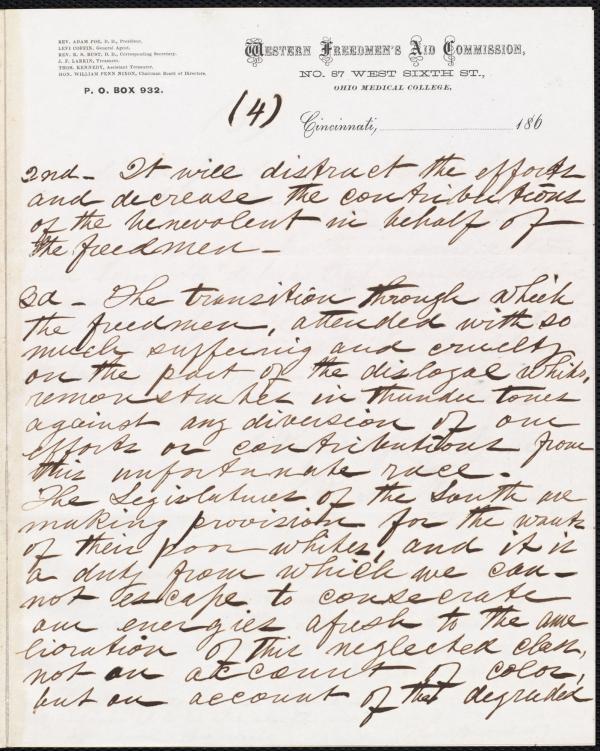 REV. ADAM POE, D. D., President.
LEVI COFFIN, General Agent.
REV. R. S. RUST, D. D., Corresponding Secretary.
J. F. LARKIN, Treasurer.
THOS. KENNEDY, Assistant Treasurer.
HON. WILLIAM PENN NIXON, Chairman Board of Directors.
P. O. BOX 932.
WESTERN FREEDMEN'S AID COMMISSION,
NO. 87 WEST SIXTH ST.,
OHIO MEDICAL COLLEGE,
(4)
Cincinnati, 186
2nd - It will distract the efforts
and decrease the contributions
of the benevolent in behalf of
the freedmen -
3d - The transition through which
the freedmen, attended with so
much suffering and cruelty
on the part of the disloyal whites,
remonstrates in thunder tones
against any diversion of our
efforts or contributions from
this unfortunate race.
The Legislatures of the South are
making provision for the wants
of their poor whites, and it is
a duty from which we can-
not escape to consecrate
our energies afresh to the ame
lioration of this neglected class,
not on account of color,
but on account of that degraded